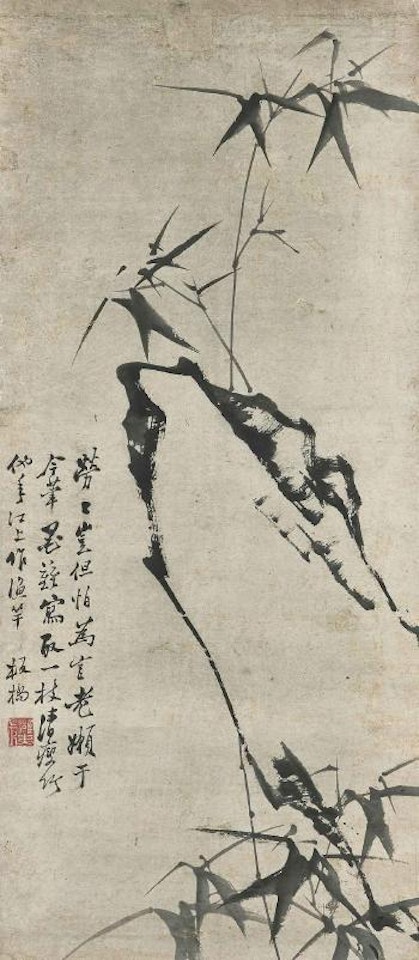 勞〻豈但怕為官老嬾于
今筆墨難寫取一枝清瘦竹
他年江上作漁竿 板橋